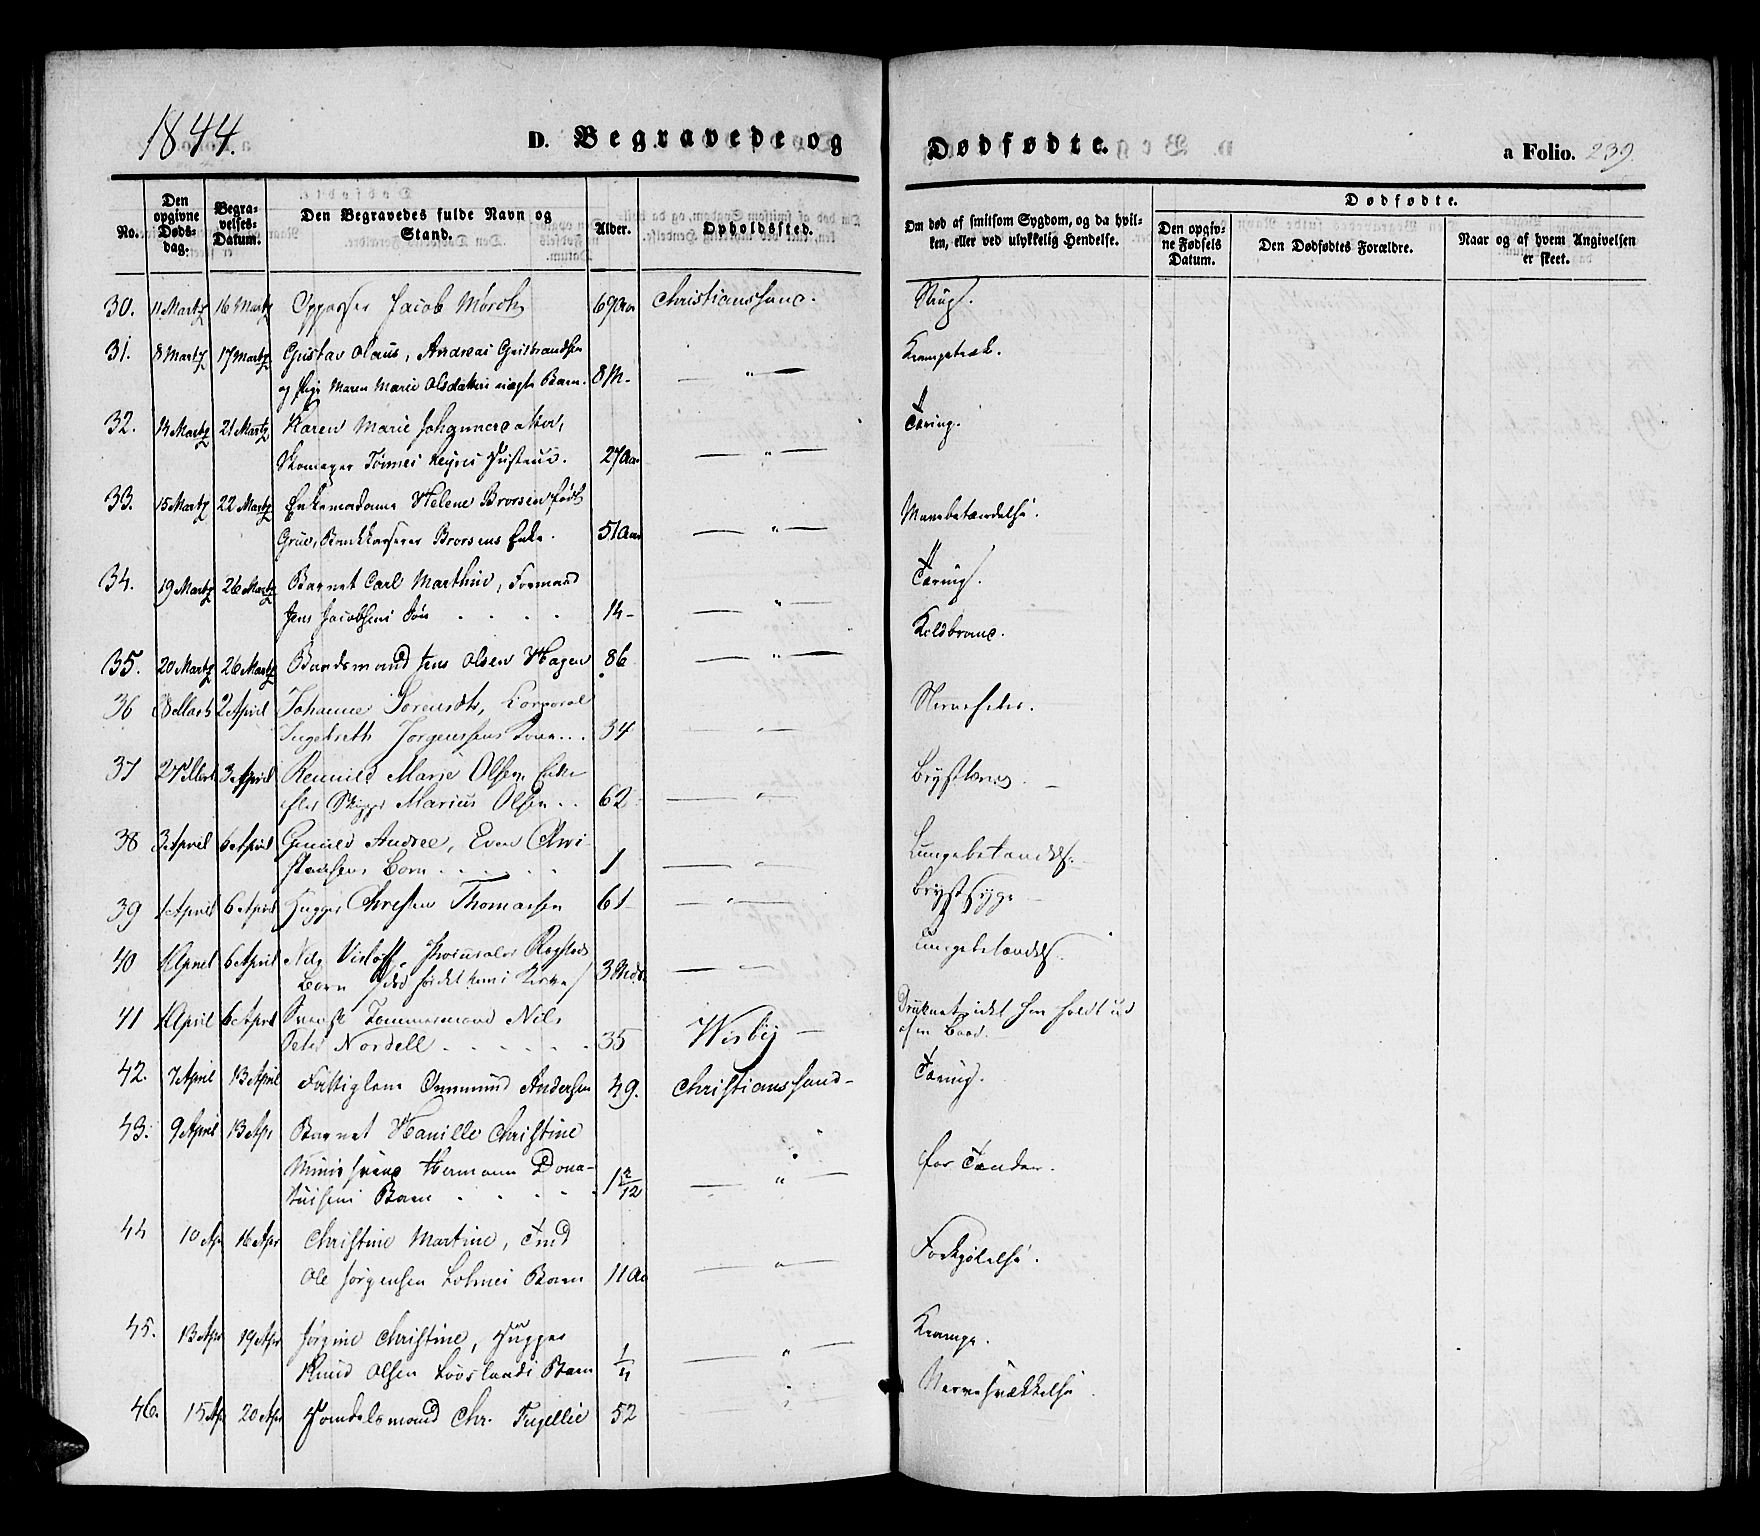 1844.
D. Begravede og
Dødfødte.
a Folio. 239.
No.
Den opgivne Døds-dag.
Begra-velses-Datum.
Den Begravedes fulde Navn og Stand.
Alder.
Opholdssted.
Om død af smitsom Sygdom, og da hvil-ken, eller ved ulykkelig Hendelse.
Dødfødte.
Den opgiv-ne Fødsels Datum.
Den Dødfødtes Forældre.
Naar og af hvem Angivelsen er skeet.
30. 11 Martz 16 Martz Oppasser Jacob Mørch 69 Aar Christianssand.
31. 8 Martz 17 Martz Gustav Olaus, Andreas Gulbrandsen
og Pige Maren Marie Olsdatters uægte Barn. 8 M. — " — Krampetræk.
32. 14 Martz 21 Martz Karen Marie Johannesdatter,
Skomager Hustrue. 27 Aar — " — Tæring.
33. 15 Martz 22 Martz Enkemadame Helene Brorsen født
Grüe, Brorsens Enke. 51 Aar — " — Mavebetændelse.
34. 19 Martz 26 Martz Barnet Carl Marthin, Formand
Jens Jacobsens Søn . . . . 14 — " — Tæring.
35. 20 Martz 26 Martz Baadsmand Jens Olsen Hagen 86 — " — Koldbrand.
36 28 Marts 2 April Johanne Corporal
Ingebreth Jørgensens Kone . . 34 " Nervefeber.
37 27 Marts 3 April Marie Olsen, Enke
efter Skipper Marius Olsen . . 62 — " —
38 3 April 6 April Gunild Andree, Even Chri-
stensens Barn . . . . . 1 — " — Lungebetændels.
39 1 April 6 April Hugger Christen Thomassen 61 — " — Brystsyge
40 1 April 6 April Nils
Barn 3 Mdr. — " — Lungebetændels.
41 1 April 6 April Svensk Tømmermand Nils
Peter Nordell . . . . . . 35 Wisby — Druknet, idet han faldt ud
af en Baad.
42. 7 April 13 April Fattiglem Ommund Andersen 49. Christianssand- Tæring.
43. 9 April 13 Apr Barnet Hanille Christine
Hermann Dona-
Barn . . . . . 1 2/12 — " — for Tænder.
44 10 Apr 16 Apr Christine Martine,
Ole Jørgensen Barn 11 Aar — " — Forkjølelse.
45. 13 Apr 19 Apr Jørgine Christine, Hugger
Knud Olsen Barn — " — Krampe.
46. 15 Apr 20 Apr Handelsmand Chr. 52 " Nervesvækkelse.